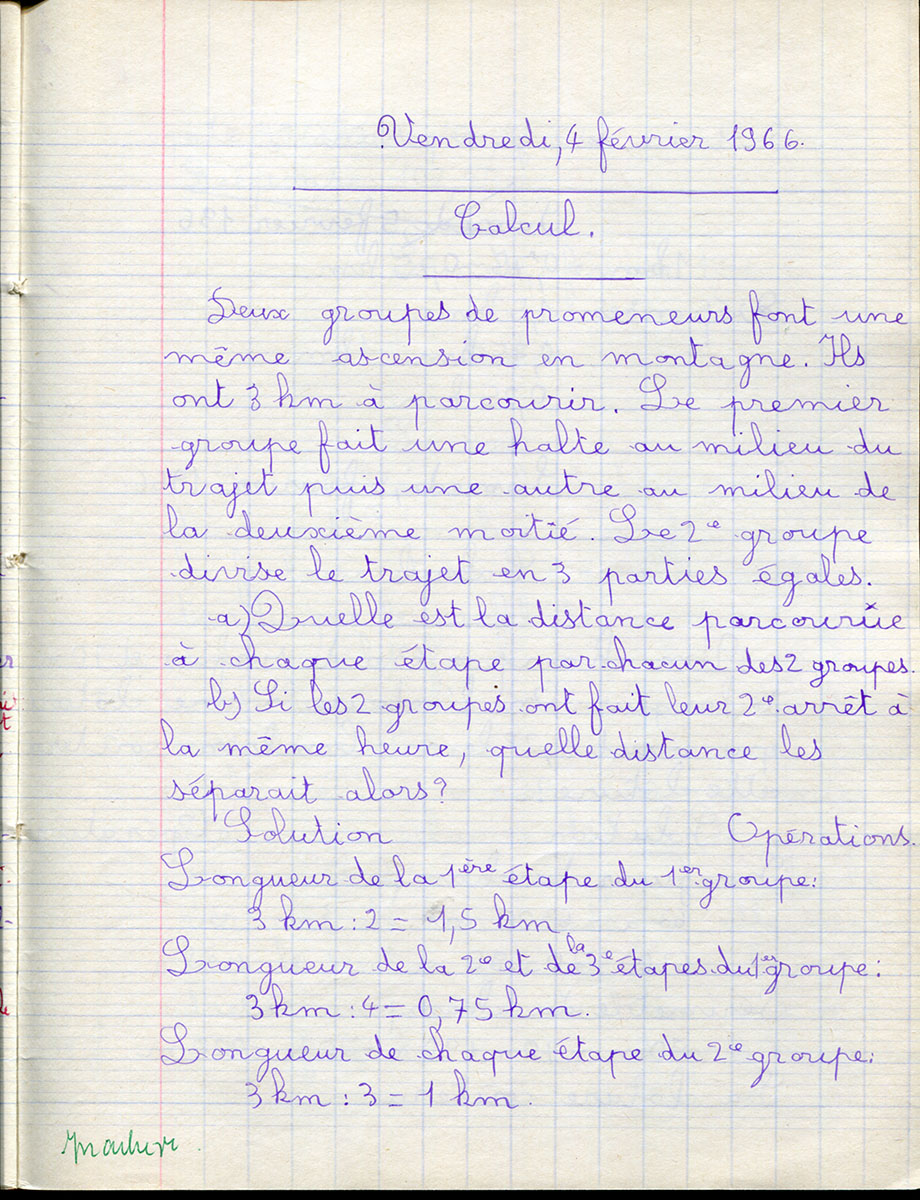 Vendredi, 4 février 1966.
Calcul.
Deux groupes de promeneurs font une
même ascension en montagne. Ils
ont 3 km à parcourir. Le premier
groupe fait une halte au milieu du
trajet puis une autre au milieu de
la deuxième moitié. Le 2e groupe
divise le trajet en 3 parties égales.
a) Quelle est la distance parcourue
à chaque étape par chacun des 2 groupes.
b) Si les 2 groupes ont fait leur 2e arrêt à
la même heure, quelle distance les
séparait alors?
Solution Opérations.
Longueur de la 1ère étape du 1er groupe:
3 km : 2 = 1,5 km.
Longueur de la 2e et de la 3e étapes du 1er groupe:
3 km : 4 = 0,75 km.
Longueur de chaque étape du 2e groupe:
3 km : 3 = 1 km.